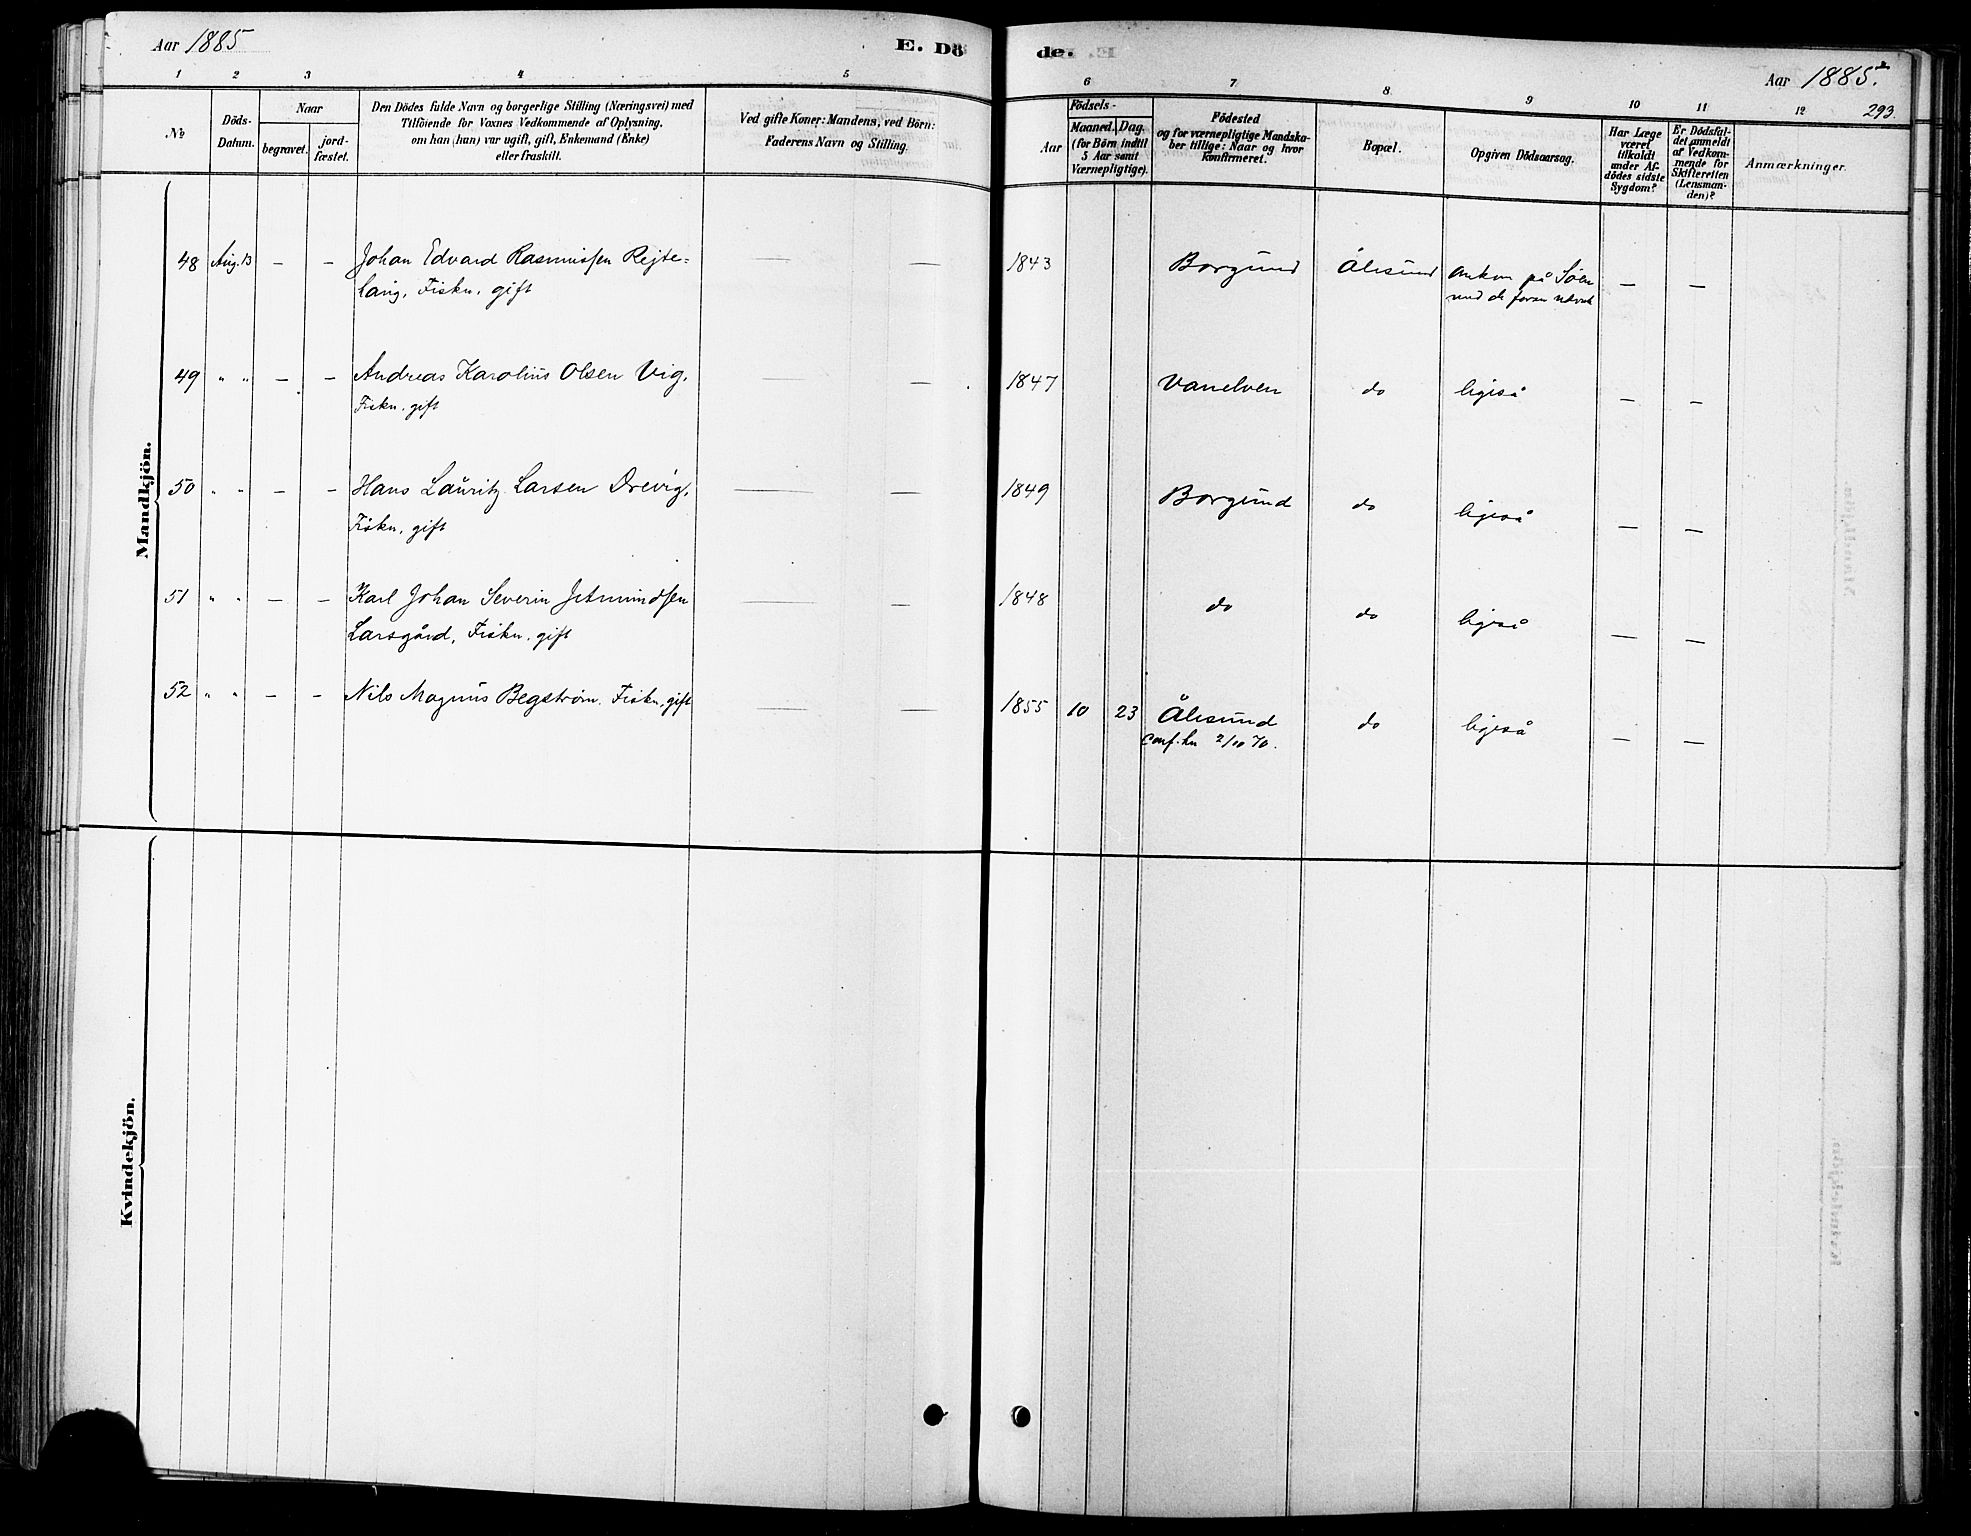 Aar 1885
E. Dö
de.
Aar 1885.
293.
1 2 3 4 5
6 7 8 9 10 11 12
No
Döds-
Datum.
Naar
begravet.
jord-
fæstet.
Den Dödes fulde Navn og borgerlige Stilling (Næringsvei) med
Tilföiende for Voxnes Vedkommende af Oplysning,
om han (hun) var ugift, gift, Enkemand (Enke)
eller fraskilt.
Ved gifte Koner: Mandens, ved Börn:
Faderens Navn og Stilling.
Födsels-
Aar
Maaned. Dag.
(for Börn indtil
5 Aar samt
Værnepligtige).
Födested
og for værnepligtige Mandska-
ber tillige: Naar og hvor
Konfirmeret.
Bopæl.
Opgiven Dödsaarsag.
Har Læge
været
tilkaldt
under Af-
dödes sidste
Sygdom?
Er Dödsfal-
det anmeldt
af Vedkom-
mende for
Skifteretten
(Lensman-
den)?
Anmærkninger.
Mandkjön.
48 Aug. 13 — — Johan Edvard Rasmussen Rejte= — — 1843 Borgund Ålesund omkom på Söen — —
lang, Fisker, gift med de foran
49 " " — — Andreas Karolius Olsen Vig, — — 1847 Vanelven do ligeså — —
Fiskr, gift
50 " " — — Hans Lauritz Larsen Drevig, — — 1849 Borgund do ligeså — —
Fiskr, gift
51 " " — — Karl Johan Severin Jetmundsen — — 1848 do do ligeså — —
Larsgård, Fiskr, gift
52 " " — — Nils Magnus Begström. Fiskr, gift — — 1855 10 23 Ålesund do ligeså — —
conf. her 2/10 70.
Kvindekjön.